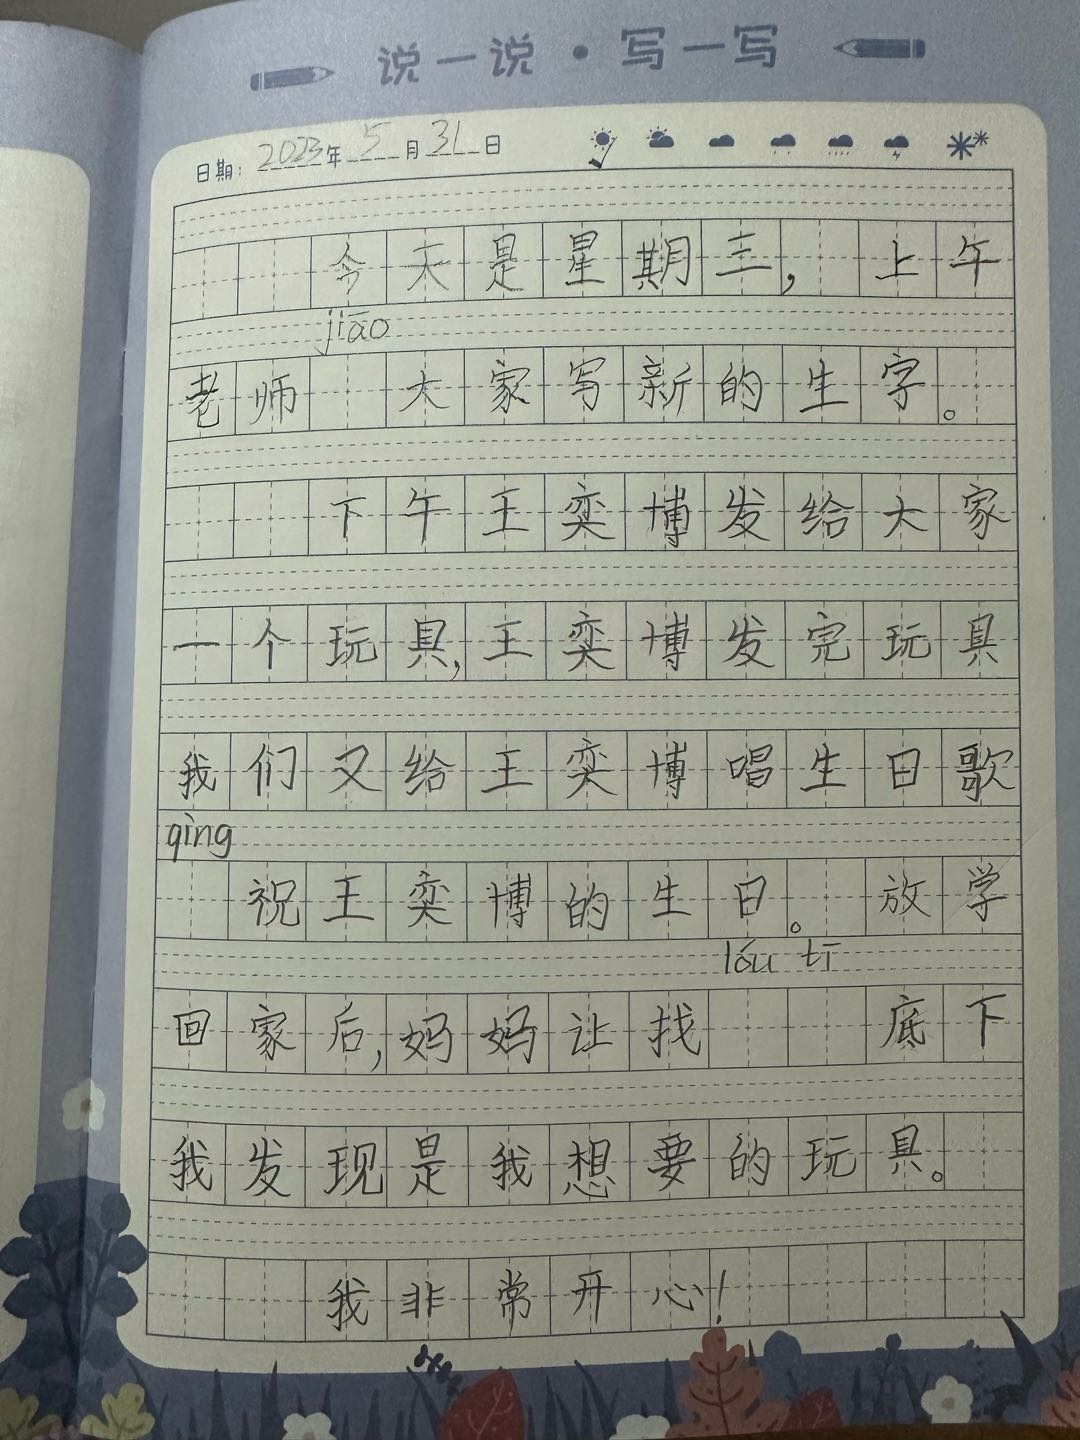 说一说·写一写
日期：2023年5月31日
今天是星期三，上午
jiāo
老师 大家写新的生字。
下午王奕博发给大家
一个玩具，王奕博发完玩具
我们又给王奕博唱生日歌
qìng
祝王奕博的生日。放学
lóu tī
回家后，妈妈让找 底下
我发现是我想要的玩具。
我非常开心！